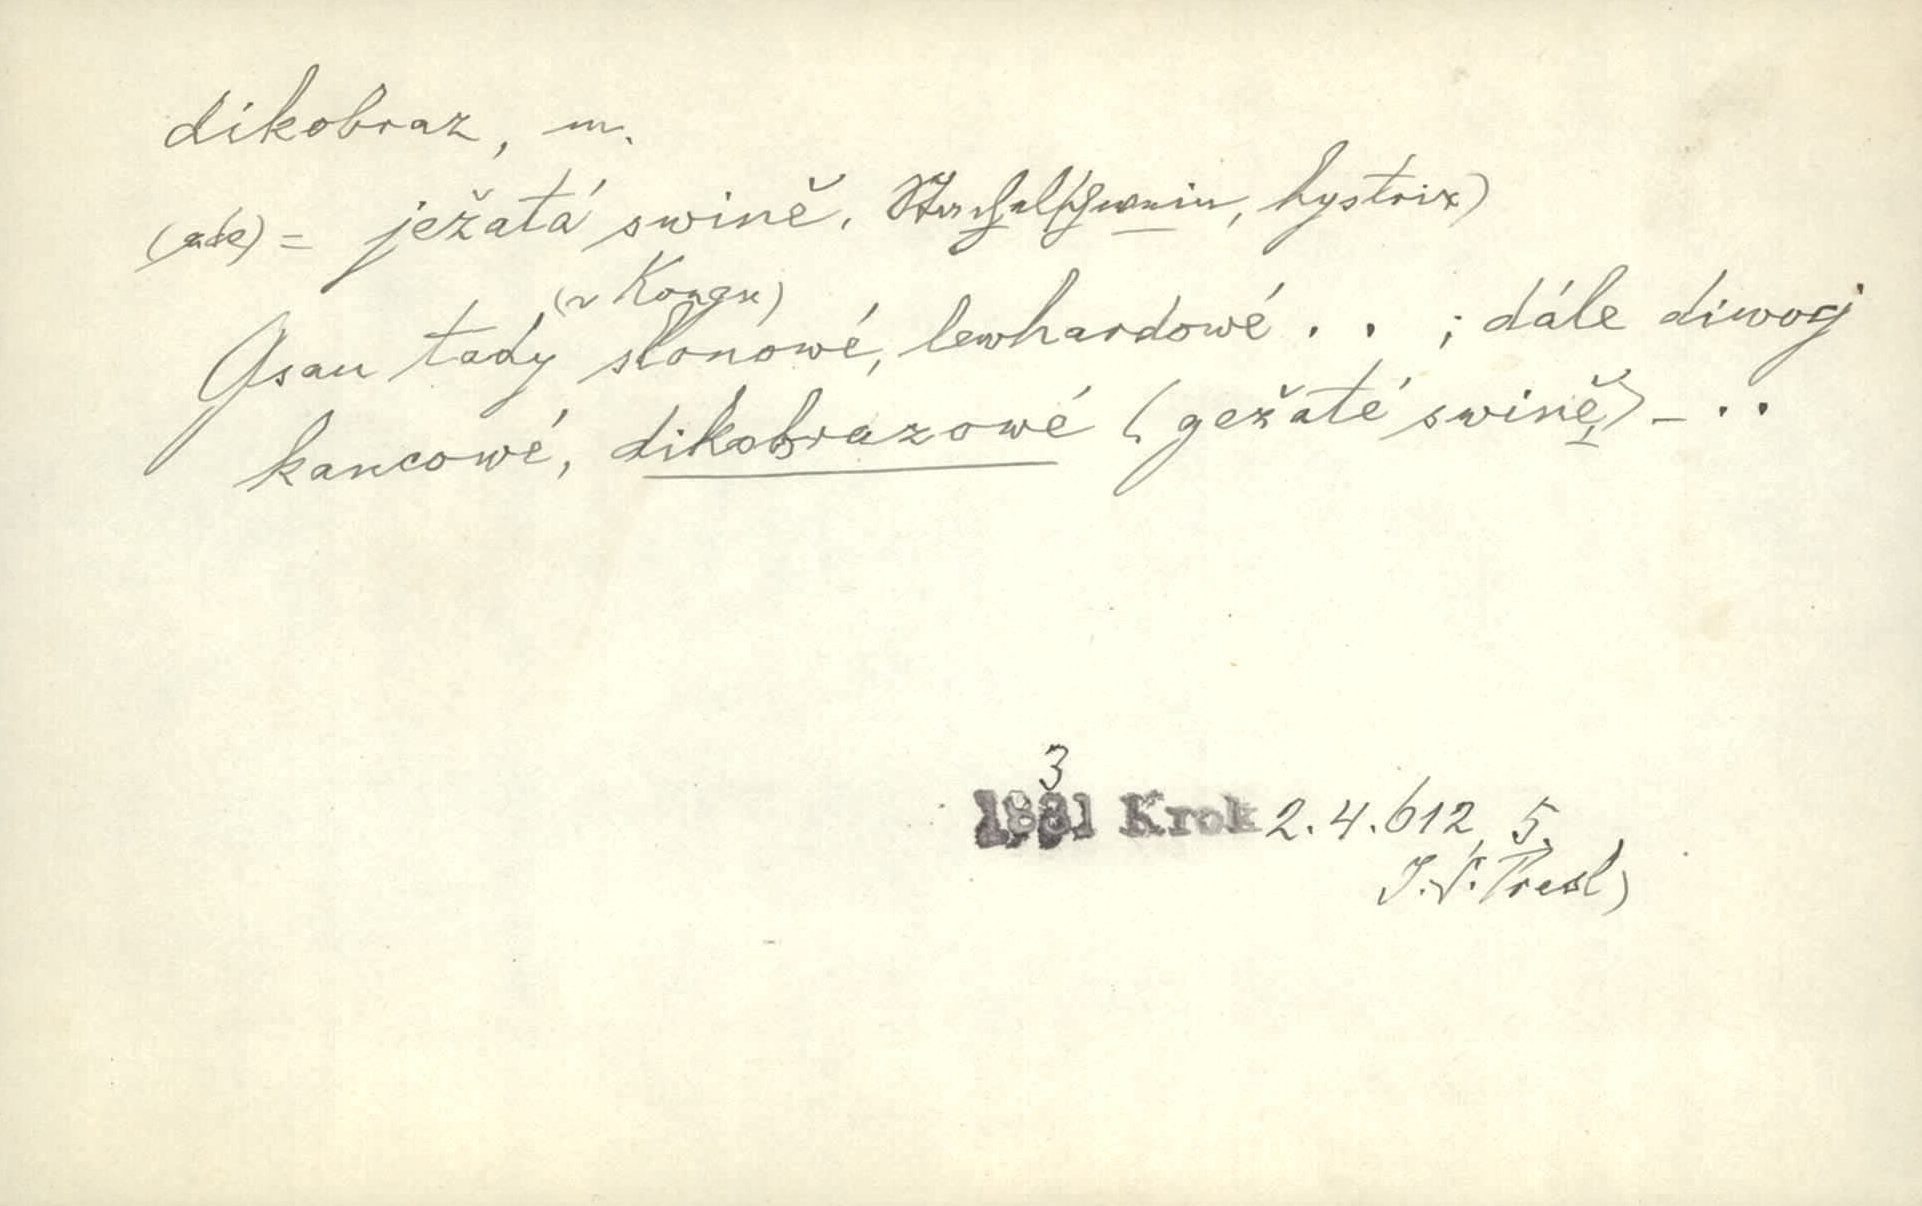 dikobraz, m.
(zde) = ježatá swině, Stachelschwein, hystrix)
(v Kongu)
Gsau tady slonowé, lewhardowé . . ; dále diwocj
kancowé, dikobrazowé (gežaté swině) - . .
3
1831 Krok 2.4.612, 5.
J. S. Presl)